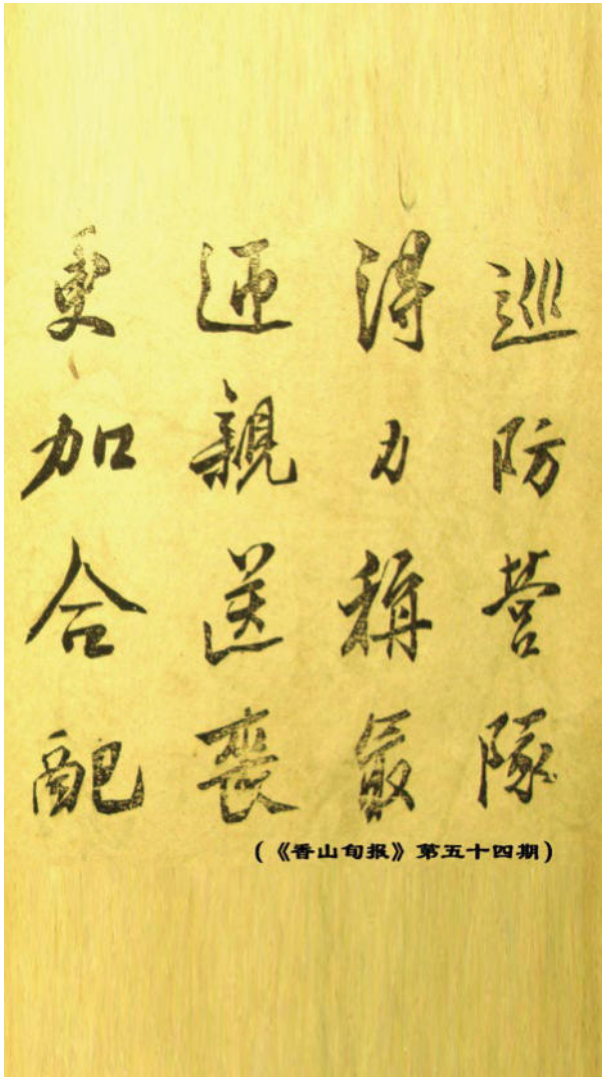 巡防营隊
得力稱最
迎親送喪
更加合配
(《香山旬报》第五十四期)